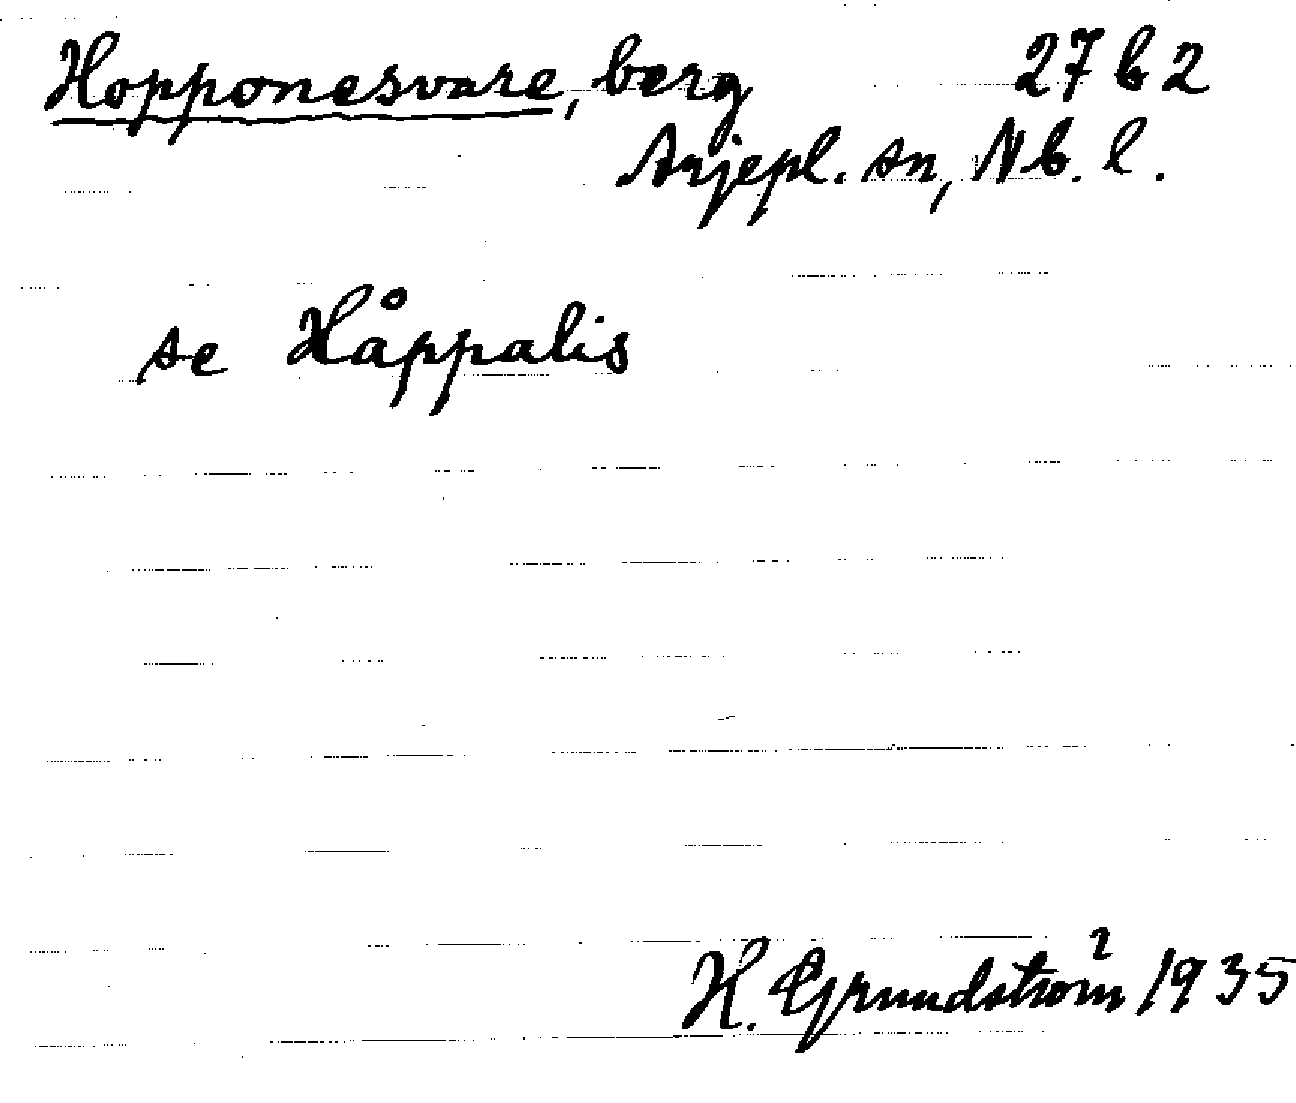 Hopponesvare, berg 27 b 2
Arjepl. sn, Nb. l.
se Håppalis
H. Grundström 1935